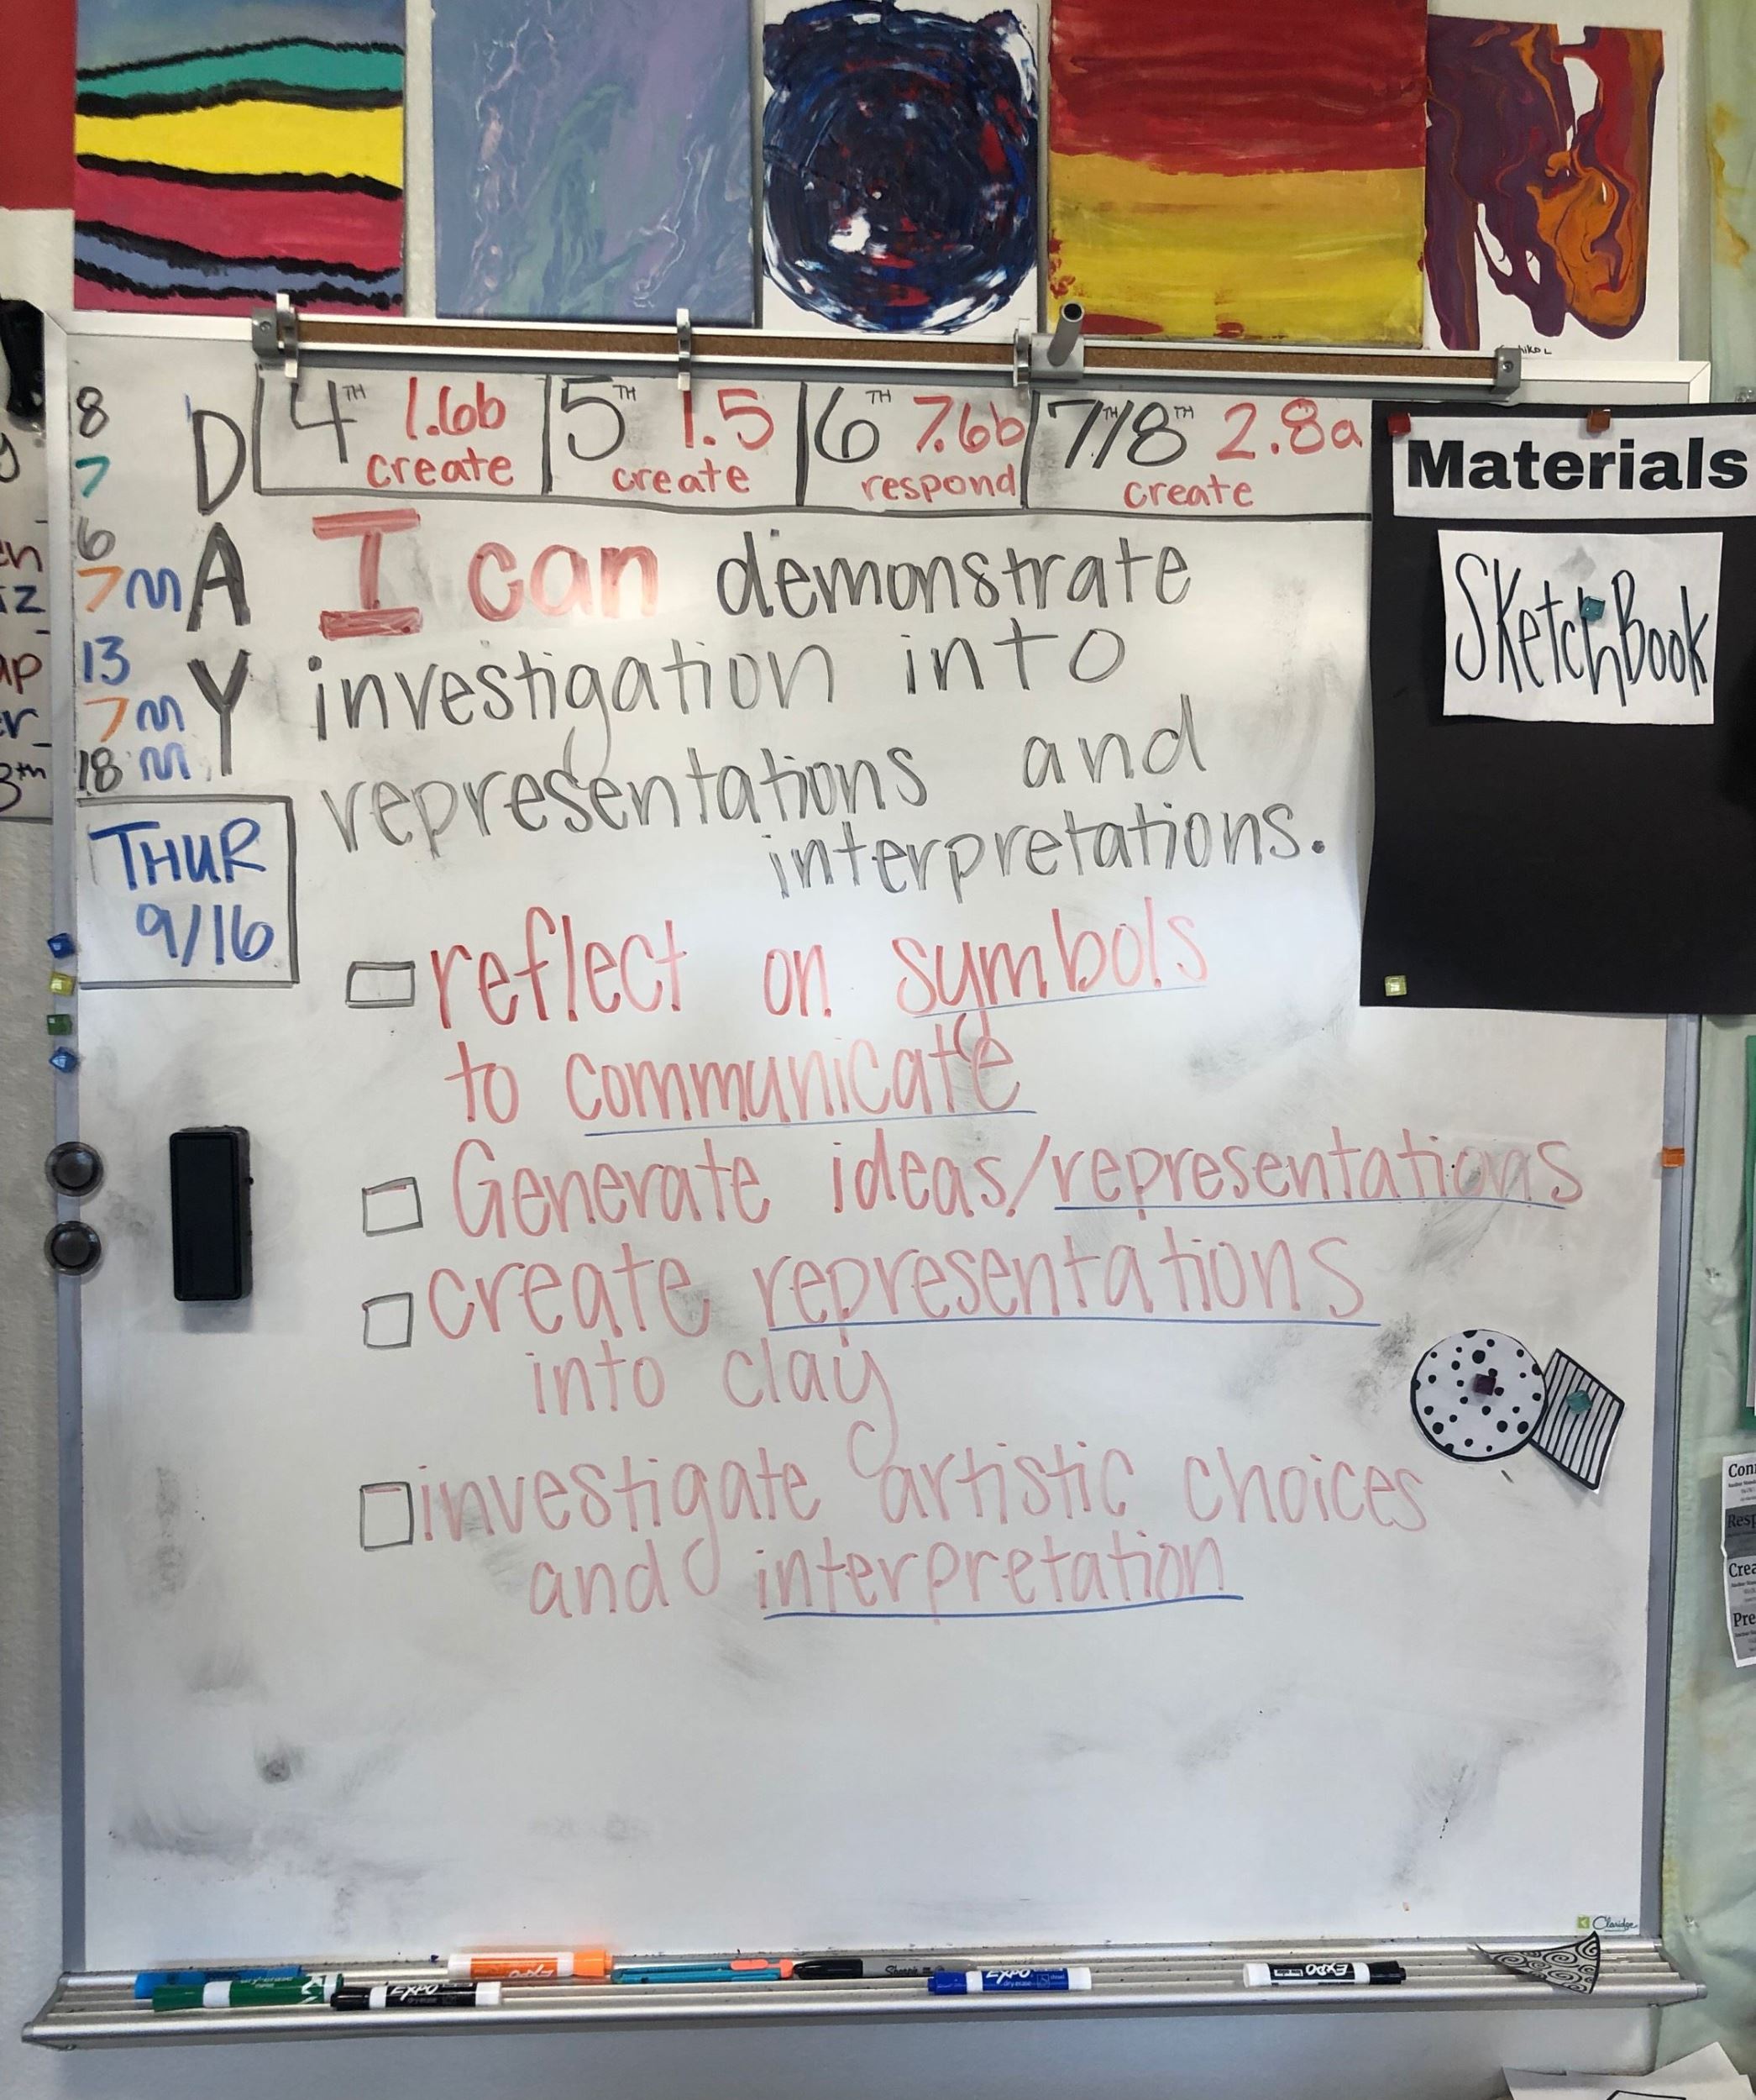 8
7
6
7 m
13
7 m
18 m
DAY
4TH 1.6b
create
5TH 1.5
create
6TH 7.6b
respond
7TH/8TH 2.8a
create
Materials
SketchBook
I can demonstrate
investigation into
representations and
interpretations.
THUR
9/16
reflect on symbols
to communicate
Generate ideas/representations
create representations
into clay
investigate artistic choices
and interpretation
Claridge
EXPO
EXPO
Sharpie
EXPO
EXPO